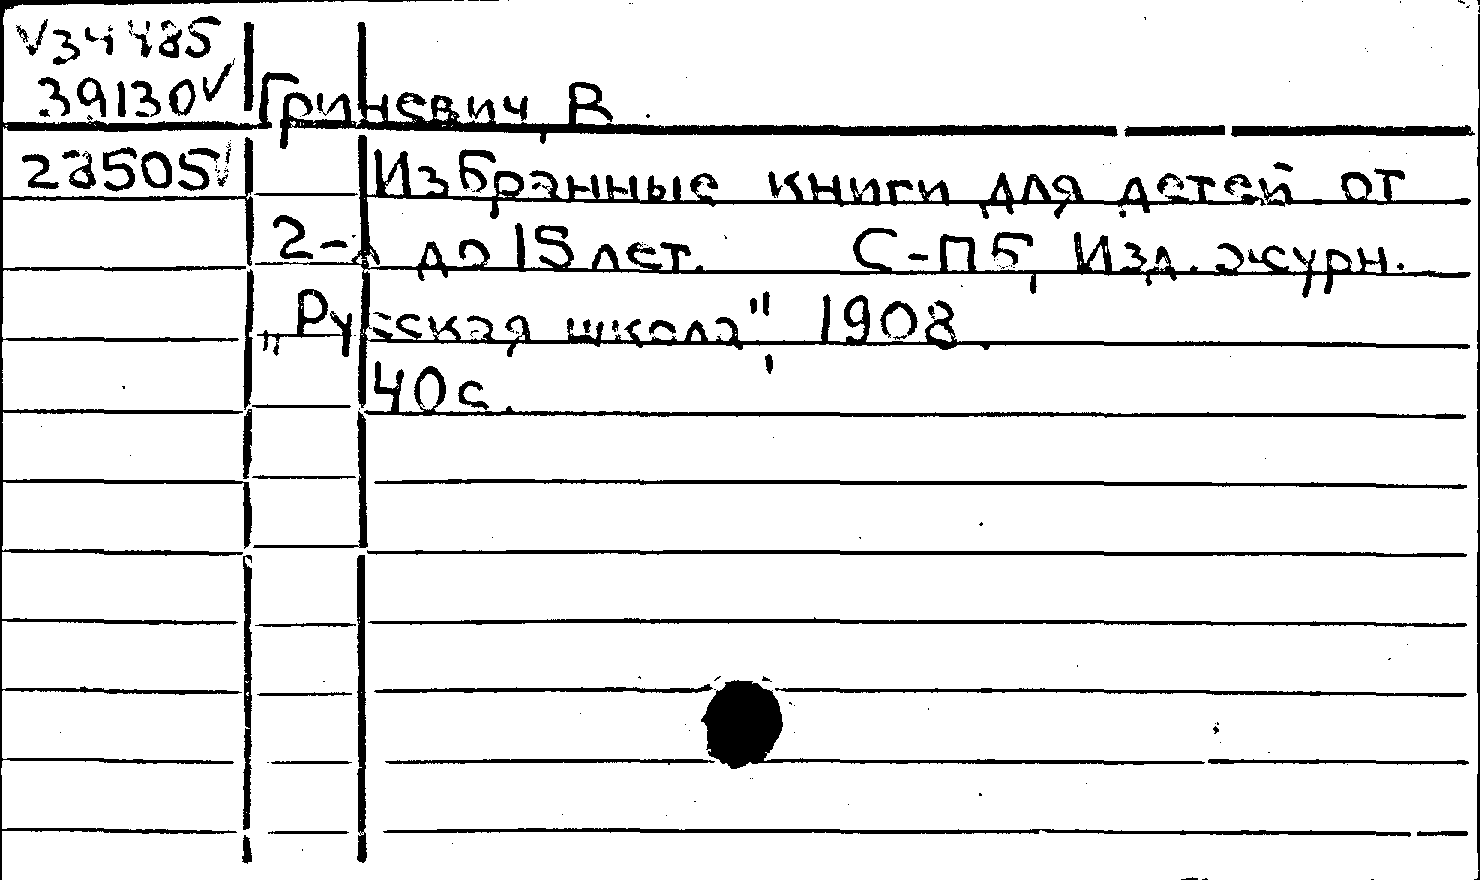 V34485
39130V Гриневич, В.
28505V Избранные книги для детей от
2-х до 15 лет. С-ПБ, Изд. журн.
„Русская школа", 1908.
40 с.